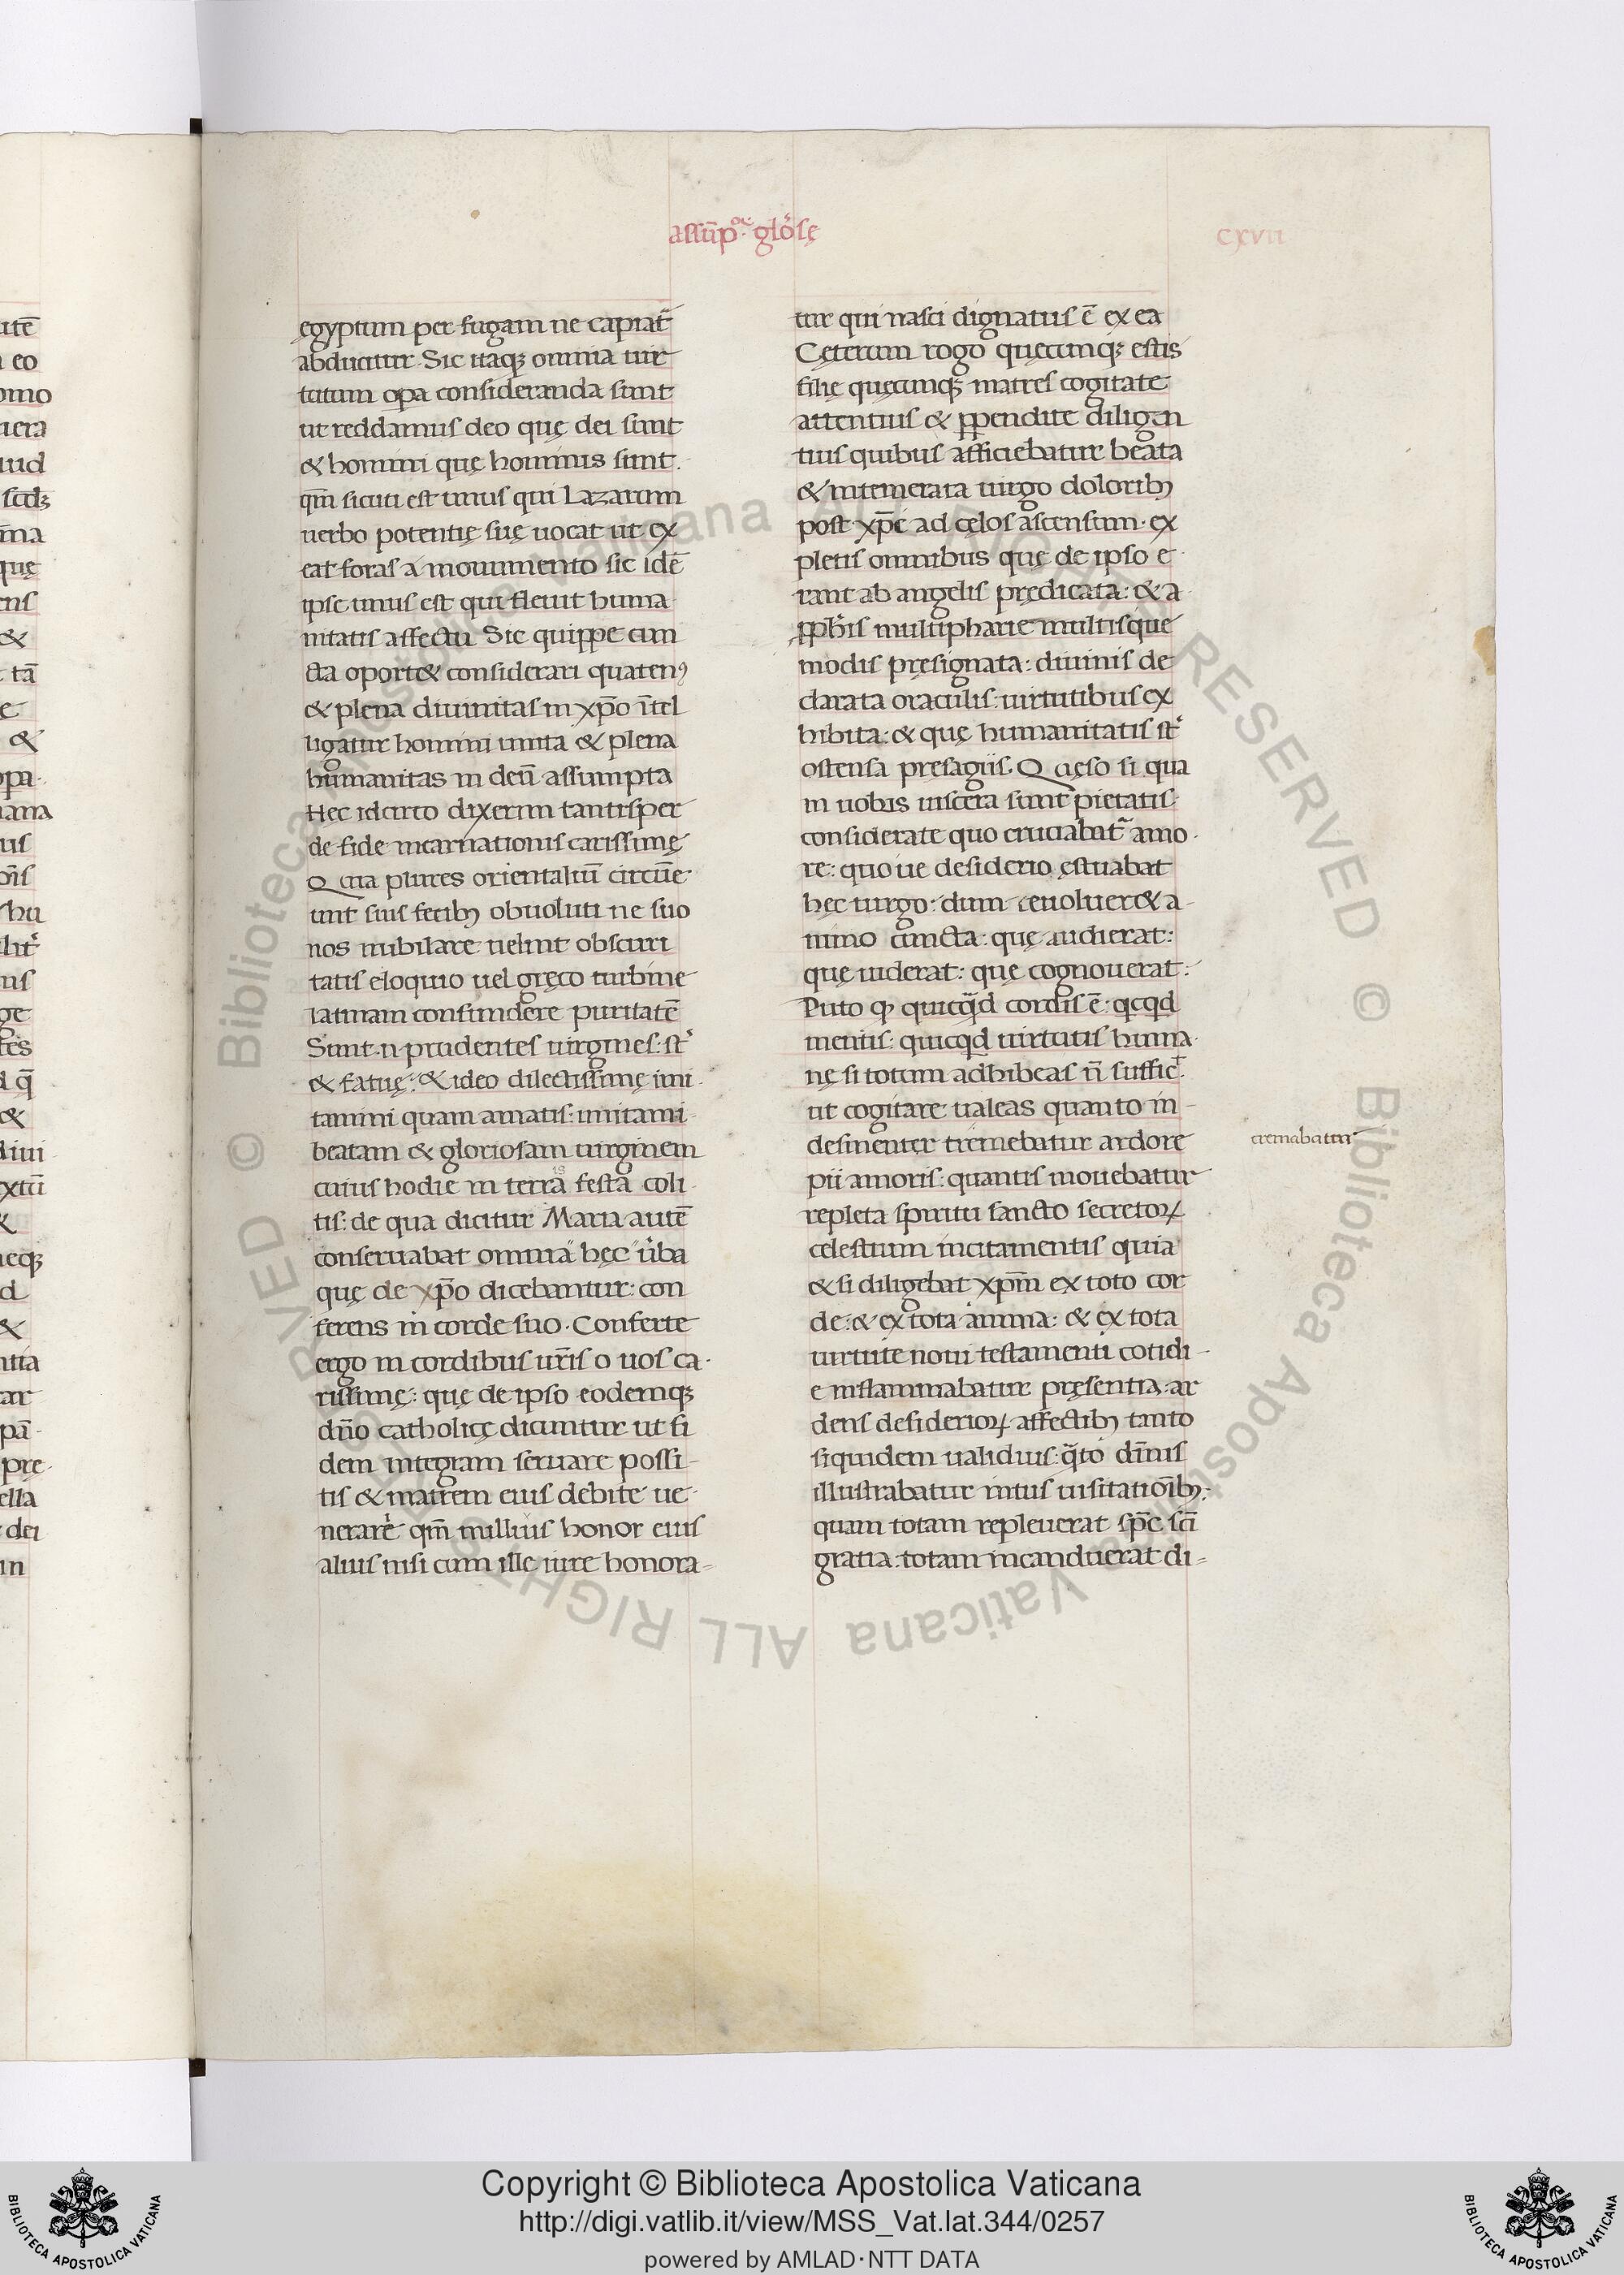 assūp. glośę
cxvii
ęgyptum per fugam ne capiat᷑
abducitur. Sic itaq; omnia uir
tutum opa consideranda sunt
ut reddamus deo quę dei sunt
& homini quę hominis sunt.
qm̄ sicuti est unus qui Lazarum
uerbo potentię suę uocat ut ex
eat foras a monumento sic idē
ipse unus est qui fleuit huma
nitatis affectu Sic quippe cun
cta oport& considerari quaten᷒
& plena diuinitas in xp̄o ītel
ligatur homini unita & plena
humanitas in deū assumpta
Hec idcirco dixerim tantisper
de fide incarnationis carissimę
Quia plures orientaliū circūe
unt suis fecib; obuoluti ne suo
nos nubilare uelint obscuri
tatis eloquio uel gręco turbine
latinam confundere puritatē
Sunt .n. prudentes uirgines: st᷑
& fatuę: & ideo dilectissimę imi
tamini quam amatis: imitami
beatam & gloriosam uirginem
cuius hodie in terra is festa coli
tis: de qua dicitur Maria autē
conseruabat omnia" hęc" ūba
quę de xp̄o dicebantur: con
ferens in corde suo. Conferte
ergo in cordibus ur̄is o uos ca-
rissimę: quę de ipso eodemq;
dn̄o catholicę dicuntur ut fi
dem integram seruare possi-
tis & matrem eius debite ue
nerare qm̄ nullius honor eius
alius nisi cum ille iure honora=
tur qui nasci dignatus ē ex ea
Cęterum rogo quęcunq; estis
filię quęcunq; matres cogitate
attentius & ꝑpendite diligen
tius quibus afficiebatur beata
& intemerata uirgo dolorib;
post xp̄i ad cęlos ascensum. ex
pletis omnibus quę de ipso e
rant ab angelis prędicata: & a
ꝓph̄is multipharie multisque
modis pręsignata: diuinis de
clarata oraculis: uirtutibus ex
hibita: & quę humanitatis st᷑
ostensa presagiis. Quęso si qua
in uobis uiscera sunt pietatis
considerate quo cruciabat᷑ amo
re: quo ue desiderio ęstuabat
hęc uirgo: dum reuoluer& a-
nimo cuncta: quę audierat:
quę uiderat: quę cognouerat:
Puto q; quicq̇d cordis ē: qcqd
mentis: quicqd uirtutis huma
nę si totum adhibeas n̄ suffic̄.
ut cogitare ualeas quanto in-
desinenter tremebatur ardore
cremabatur
pii amoris: quantis mouebatur
repleta spiritu sancto secretoꝝ
celestium incitamentis quia
& si diligebat xpm̄ ex toto cor
de: & ex tota anima: & ex tota
uirtute noui testamenti cotidi-
e inflammabatur pręsentia: ar
dens desiderioꝝ affectib; tanto
siquidem ualidius: q̄to diīnis
illustrabatur intus uisitatiōib;
quam totam repleuerat sp̄c sc̄i
gratia: totam incanduerat di=
Copyright © Biblioteca Apostolica Vaticana
http://digi.vatlib.it/view/MSS_Vat.lat.344/0257
powered by AMLAD·NTT DATA